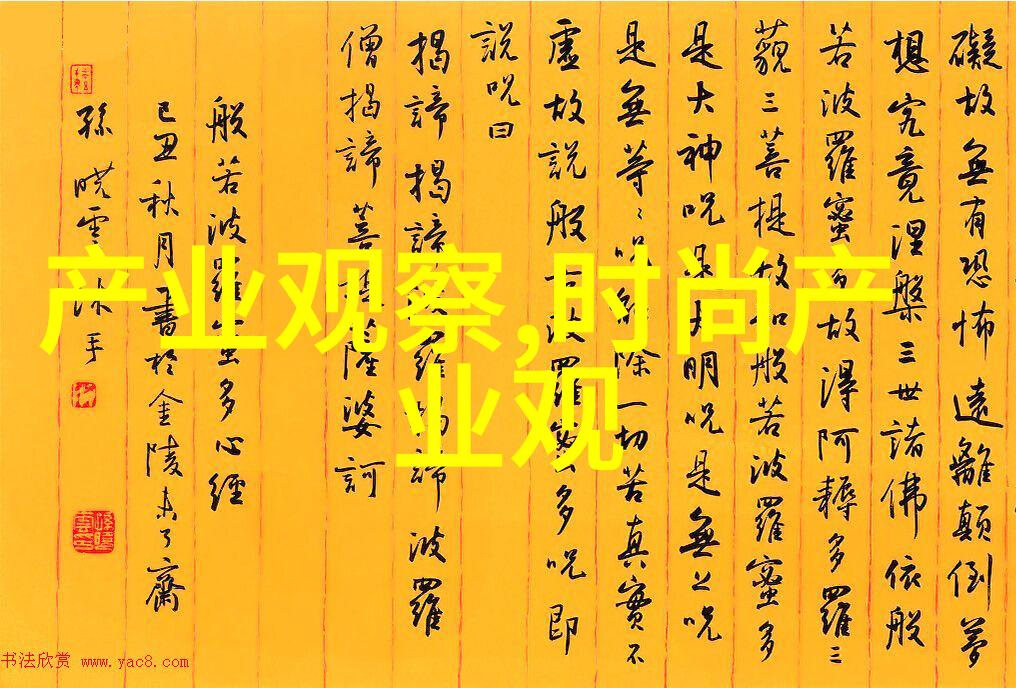 礙故無有恐怖遠離顛倒夢
想究竟涅槃三世諸佛依般
若波羅蜜多故得阿耨多羅三
藐三菩提故知般若波羅蜜多
是大神呪是大明呪是無上呪
是無等々呪能除一切苦真實不
虛故說般若波羅蜜多呪即
說呪曰
揭諦揭諦波羅揭諦波羅
僧揭諦菩提薩婆訶
般若波羅蜜多心經
己丑秋月書於金陵未了齋
孫曉雲沐手
产业观察,时尚产
业观
书法欣赏 www.yac8.com